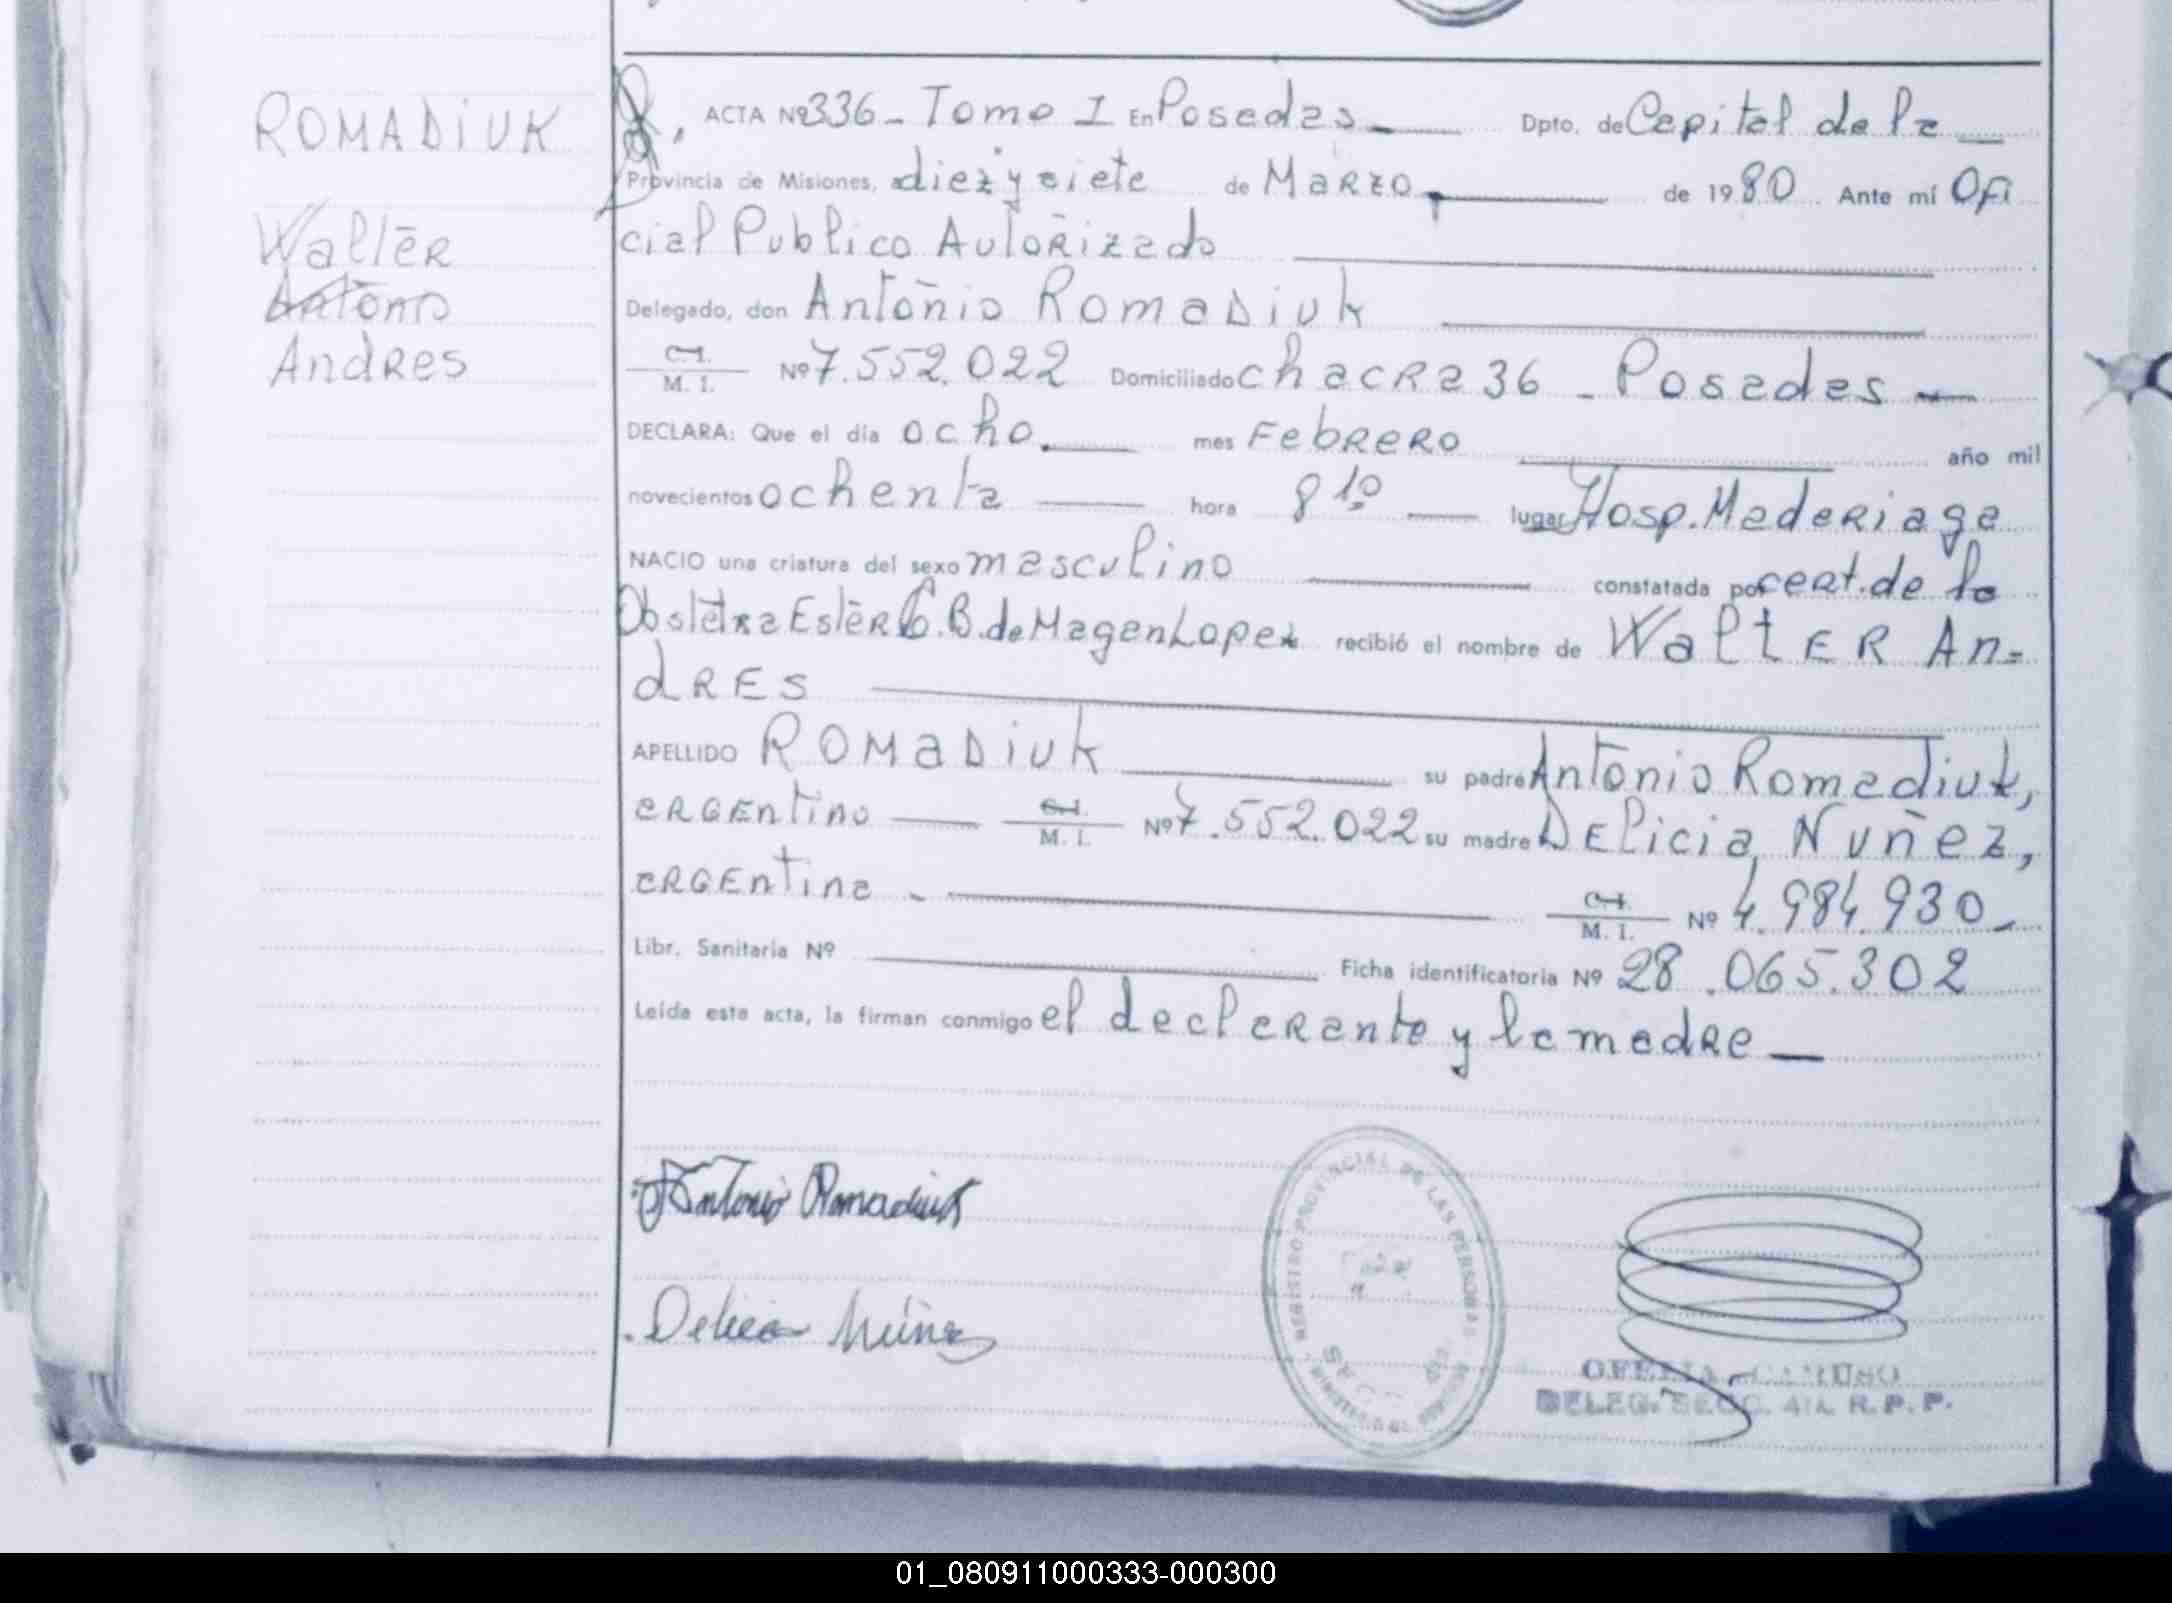 ROMADIUK
Walter
Antonio
Andres
ACTA Nº 336 - Tomo I En Posadas - Dpto. de Capital de la
Provincia de Misiones, a diez y siete de Marzo, de 1980 Ante mí Ofi
cial Publico Autorizado
Delegado, don Antonio Romadiuk
C.I.
M. I. Nº 7.552.022 Domiciliado chacra 36 - Posadas -
DECLARA: Que el día ocho. mes Febrero año mil
novecientos ochenta hora 8 10 lugar Hosp. Madariaga
NACIO una criatura del sexo masculino constatada por cert. de la
Obstetra Ester C. B. de Magen Lopez recibió el nombre de Walter An=
dres
APELLIDO ROMADIUK su padre Antonio Romadiuk,
argentino C.I.
M. I. Nº 7.552.022 su madre Delicia Nuñez,
argentina - C.I.
M. I. Nº 4.984.930-
Libr. Sanitaria Nº Ficha identificatoria Nº 28.065.302
Leída esta acta, la firman conmigo el declarante y la madre -
Antonio Romadiuk
Delicia Núñez
REGISTRO PROVINCIAL DE LAS PERSONAS
OFELIA CARUSO
DELEG. SECC. 4ta. R. P. P.
01_080911000333-000300